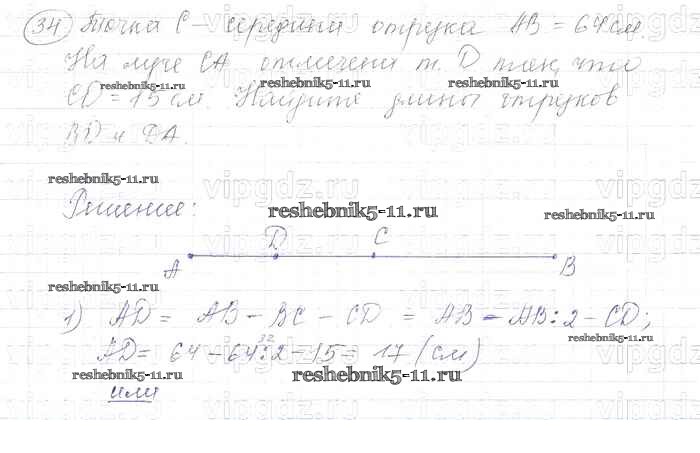 34 Точка C - середина отрезка AB = 64 см.
На луче CA отмечена т. D так, что
CD = 15 см. Найдите длины отрезков
BD и DA.
Решение:
A D C B
1) AD = AB - BC - CD = AB - AB : 2 - CD;
32
AD = 64 - 64 : 2 - 15 = 17 (см)
или
reshebnik5-11.ru
reshebnik5-11.ru
reshebnik5-11.ru
reshebnik5-11.ru
reshebnik5-11.ru
reshebnik5-11.ru
reshebnik5-11.ru
reshebnik5-11.ru
reshebnik5-11.ru
reshebnik5-11.ru
vipgdz.ru